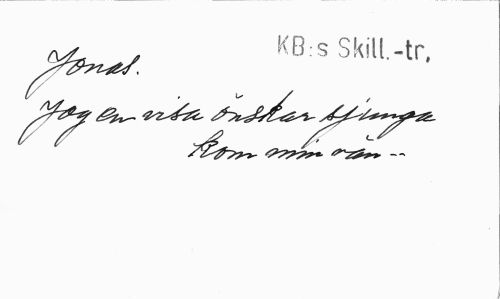 KB:s Skill.-tr,
Jonas.
Jag en visa önskar sjunga
kom min vän --